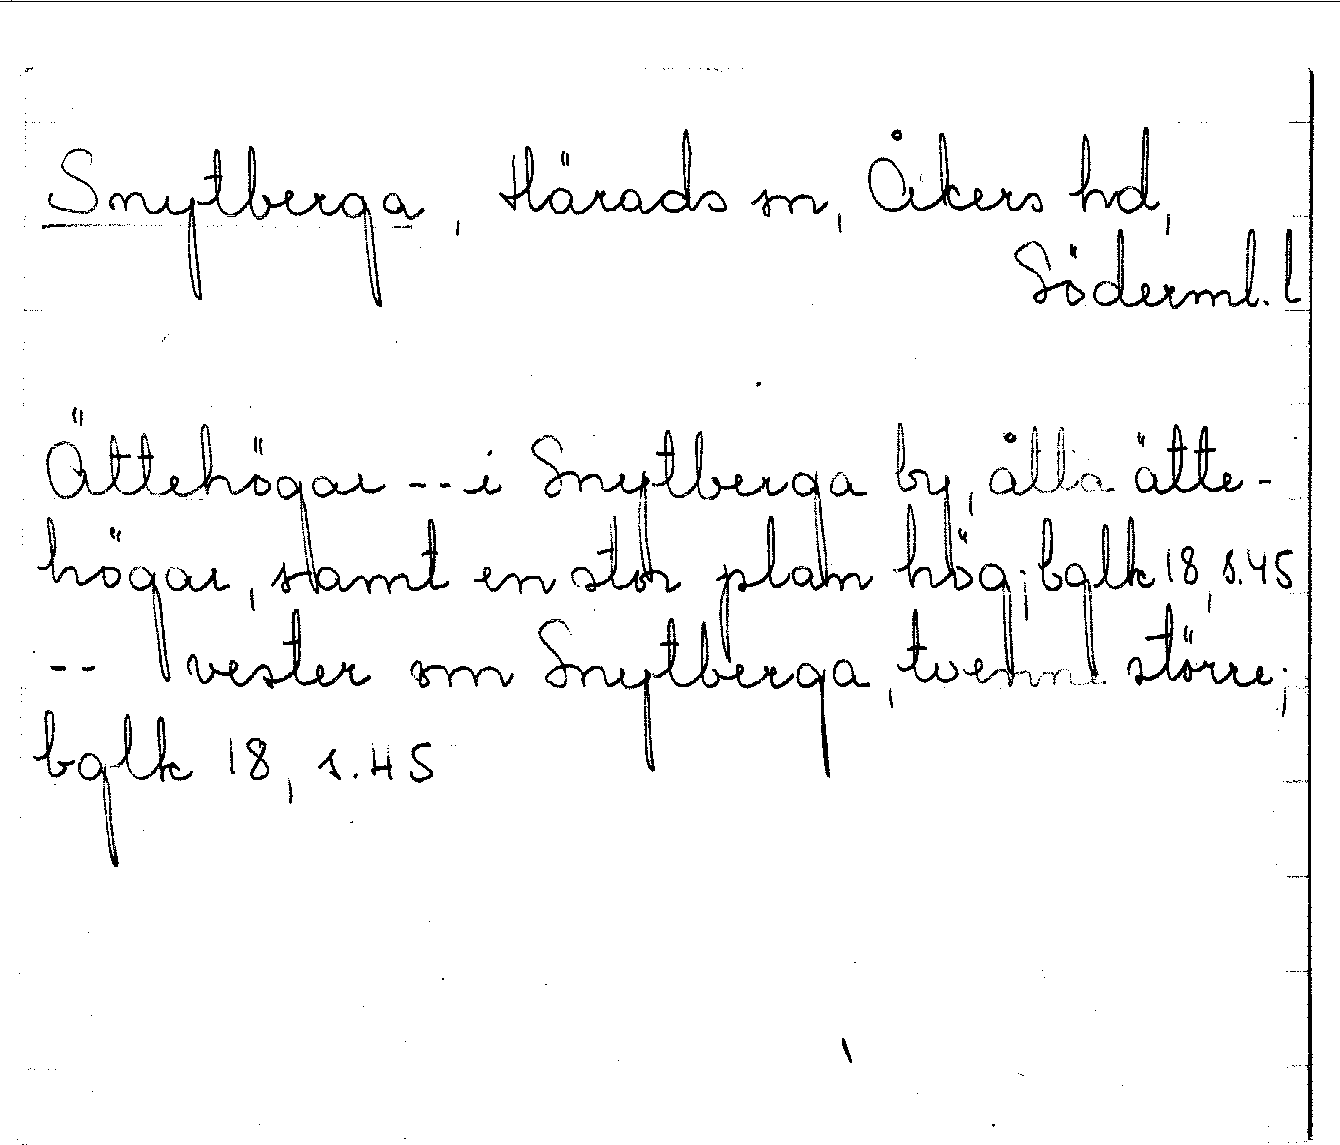 Snytberga, Härads sn, Åkers hd,
Söderml. l
Ättehögar -- i Snytberga by, åtta ätte-
högar, samt en stor plan hög; bglk 18, s. 45
-- vester om Snytberga, tvenne större;
bglk 18, s. 45